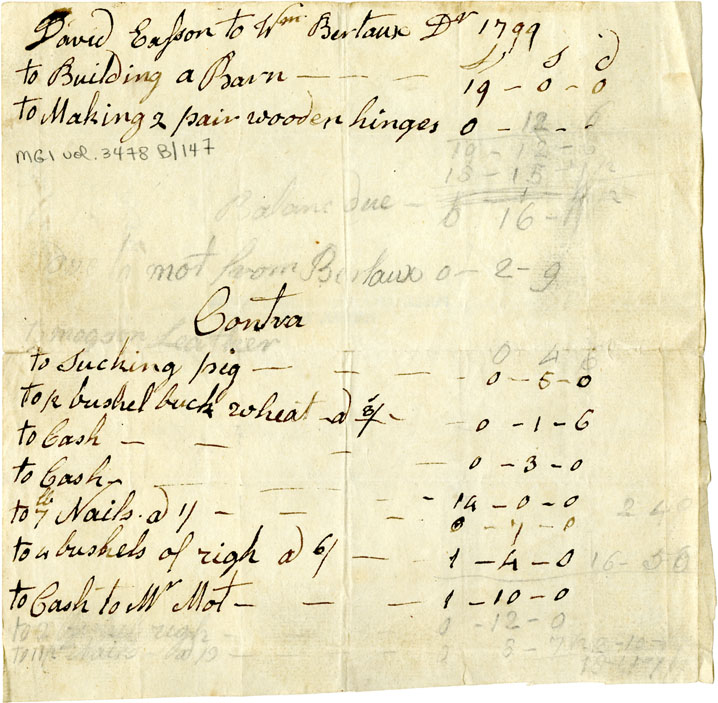 David Easson to Wm Bertaux Dr 1799
L S d
to Building a Barn — — — 19 - 0 - 0
to Making 2 pair wooden hinges 0 - 12 - 6
MG1 vol. 3478 B/147
19 - 12 - 6
Balanc due — 16
mot from Bertaux 0 - 2 - 9
Contra
Leather 0 4 6
to Sucking pig — — — 0 - 5 - 0
bushel buck wheat a 3/ - 0 - 1 - 6
to Cash — — — 0 - 3 - 0
to Cash — — — - 0 - 0
to 7 lb Nails a 1/ — — - 0 - 7 - 0
to 4 bushels of righ a 6/ — — 1 - 4 - 0
to Cash to Mr Mot — — — 1 - 10 - 0
righ — 0 - 12 - 0